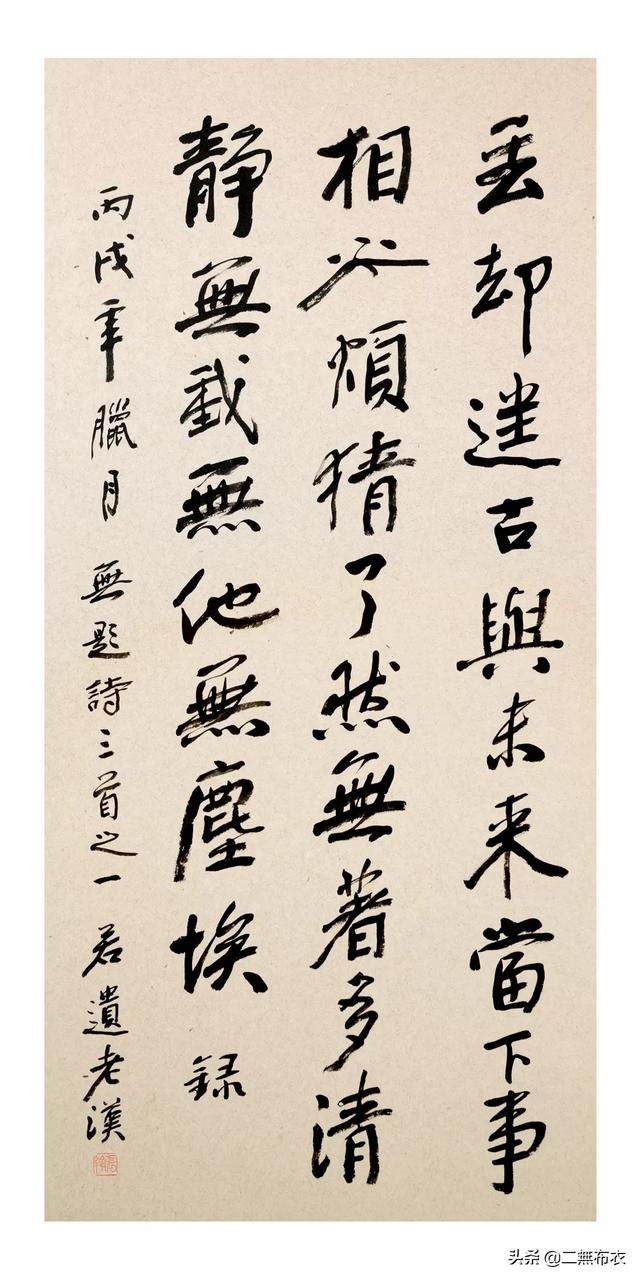 丢却遠古與未来當下事
相不煩猜了然無著多清
静無我無他無塵埃 録
丙戌年臘月 無題詩三首之一 若遺老漢
头条 @二無布衣